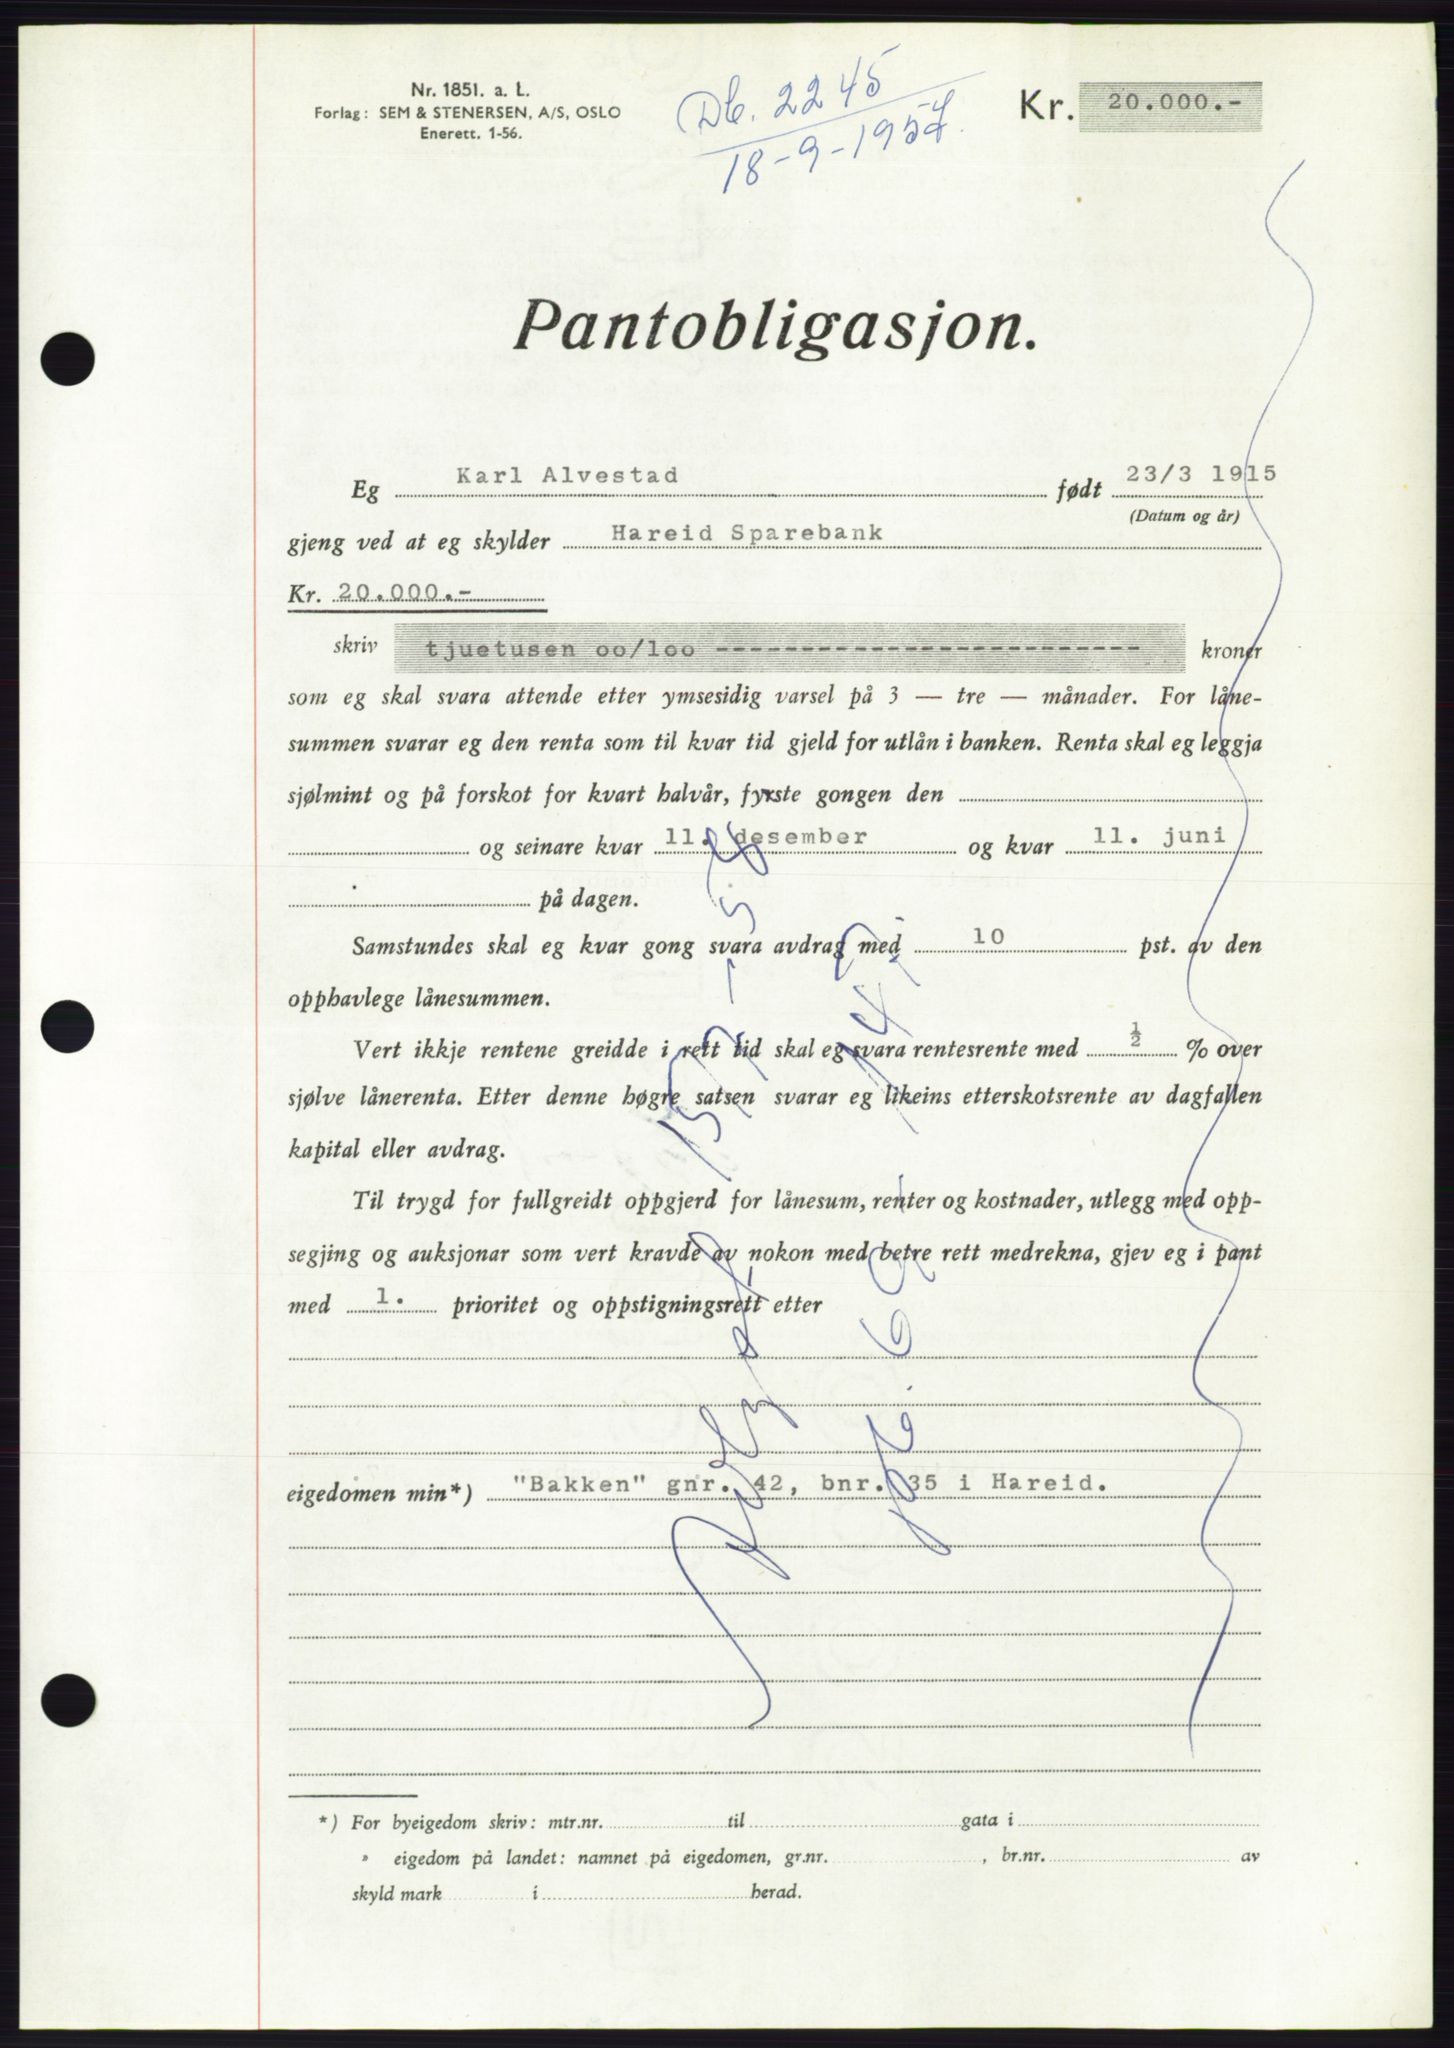 Nr. 1851. a. L.
Forlag: SEM & STENERSEN, A/S, OSLO
Enerett. 1-56.
Db. 2245
18-9-1957.
Kr. 20.000.-
Pantobligasjon.
Eg Karl Alvestad født 23/3 1915
(Datum og år)
gjeng ved at eg skylder Hareid Sparebank
Kr. 20.000.-
skriv tjuetusen oo/loo ---------------------------- kroner
som eg skal svara attende etter ymsesidig varsel på 3 — tre — månader. For låne-
summen svarar eg den renta som til kvar tid gjeld for utlån i banken. Renta skal eg leggja
sjølmint og på forskot for kvart halvår, fyrste gongen den
og seinare kvar 11. desember og kvar 11. juni
på dagen.
Samstundes skal eg kvar gong svara avdrag med 10 pst. av den
opphavlege lånesummen.
Vert ikkje rentene greidde i rett tid skal eg svara rentesrente med ½ % over
sjølve lånerenta. Etter denne høgre satsen svarar eg likeins etterskotsrente av dagfallen
kapital eller avdrag.
Til trygd for fullgreidt oppgjerd for lånesum, renter og kostnader, utlegg med opp-
segjing og auksjonar som vert kravde av nokon med betre rett medrekna, gjev eg i pant
med 1. prioritet og oppstigningsrett etter
eigedomen min*) "Bakken" gnr. 42, bnr. 35 i Hareid.
*) For byeigedom skriv: mtr.nr. til gata i
» eigedom på landet: namnet på eigedomen, gr.nr. , br.nr. av
skyld mark i herad.